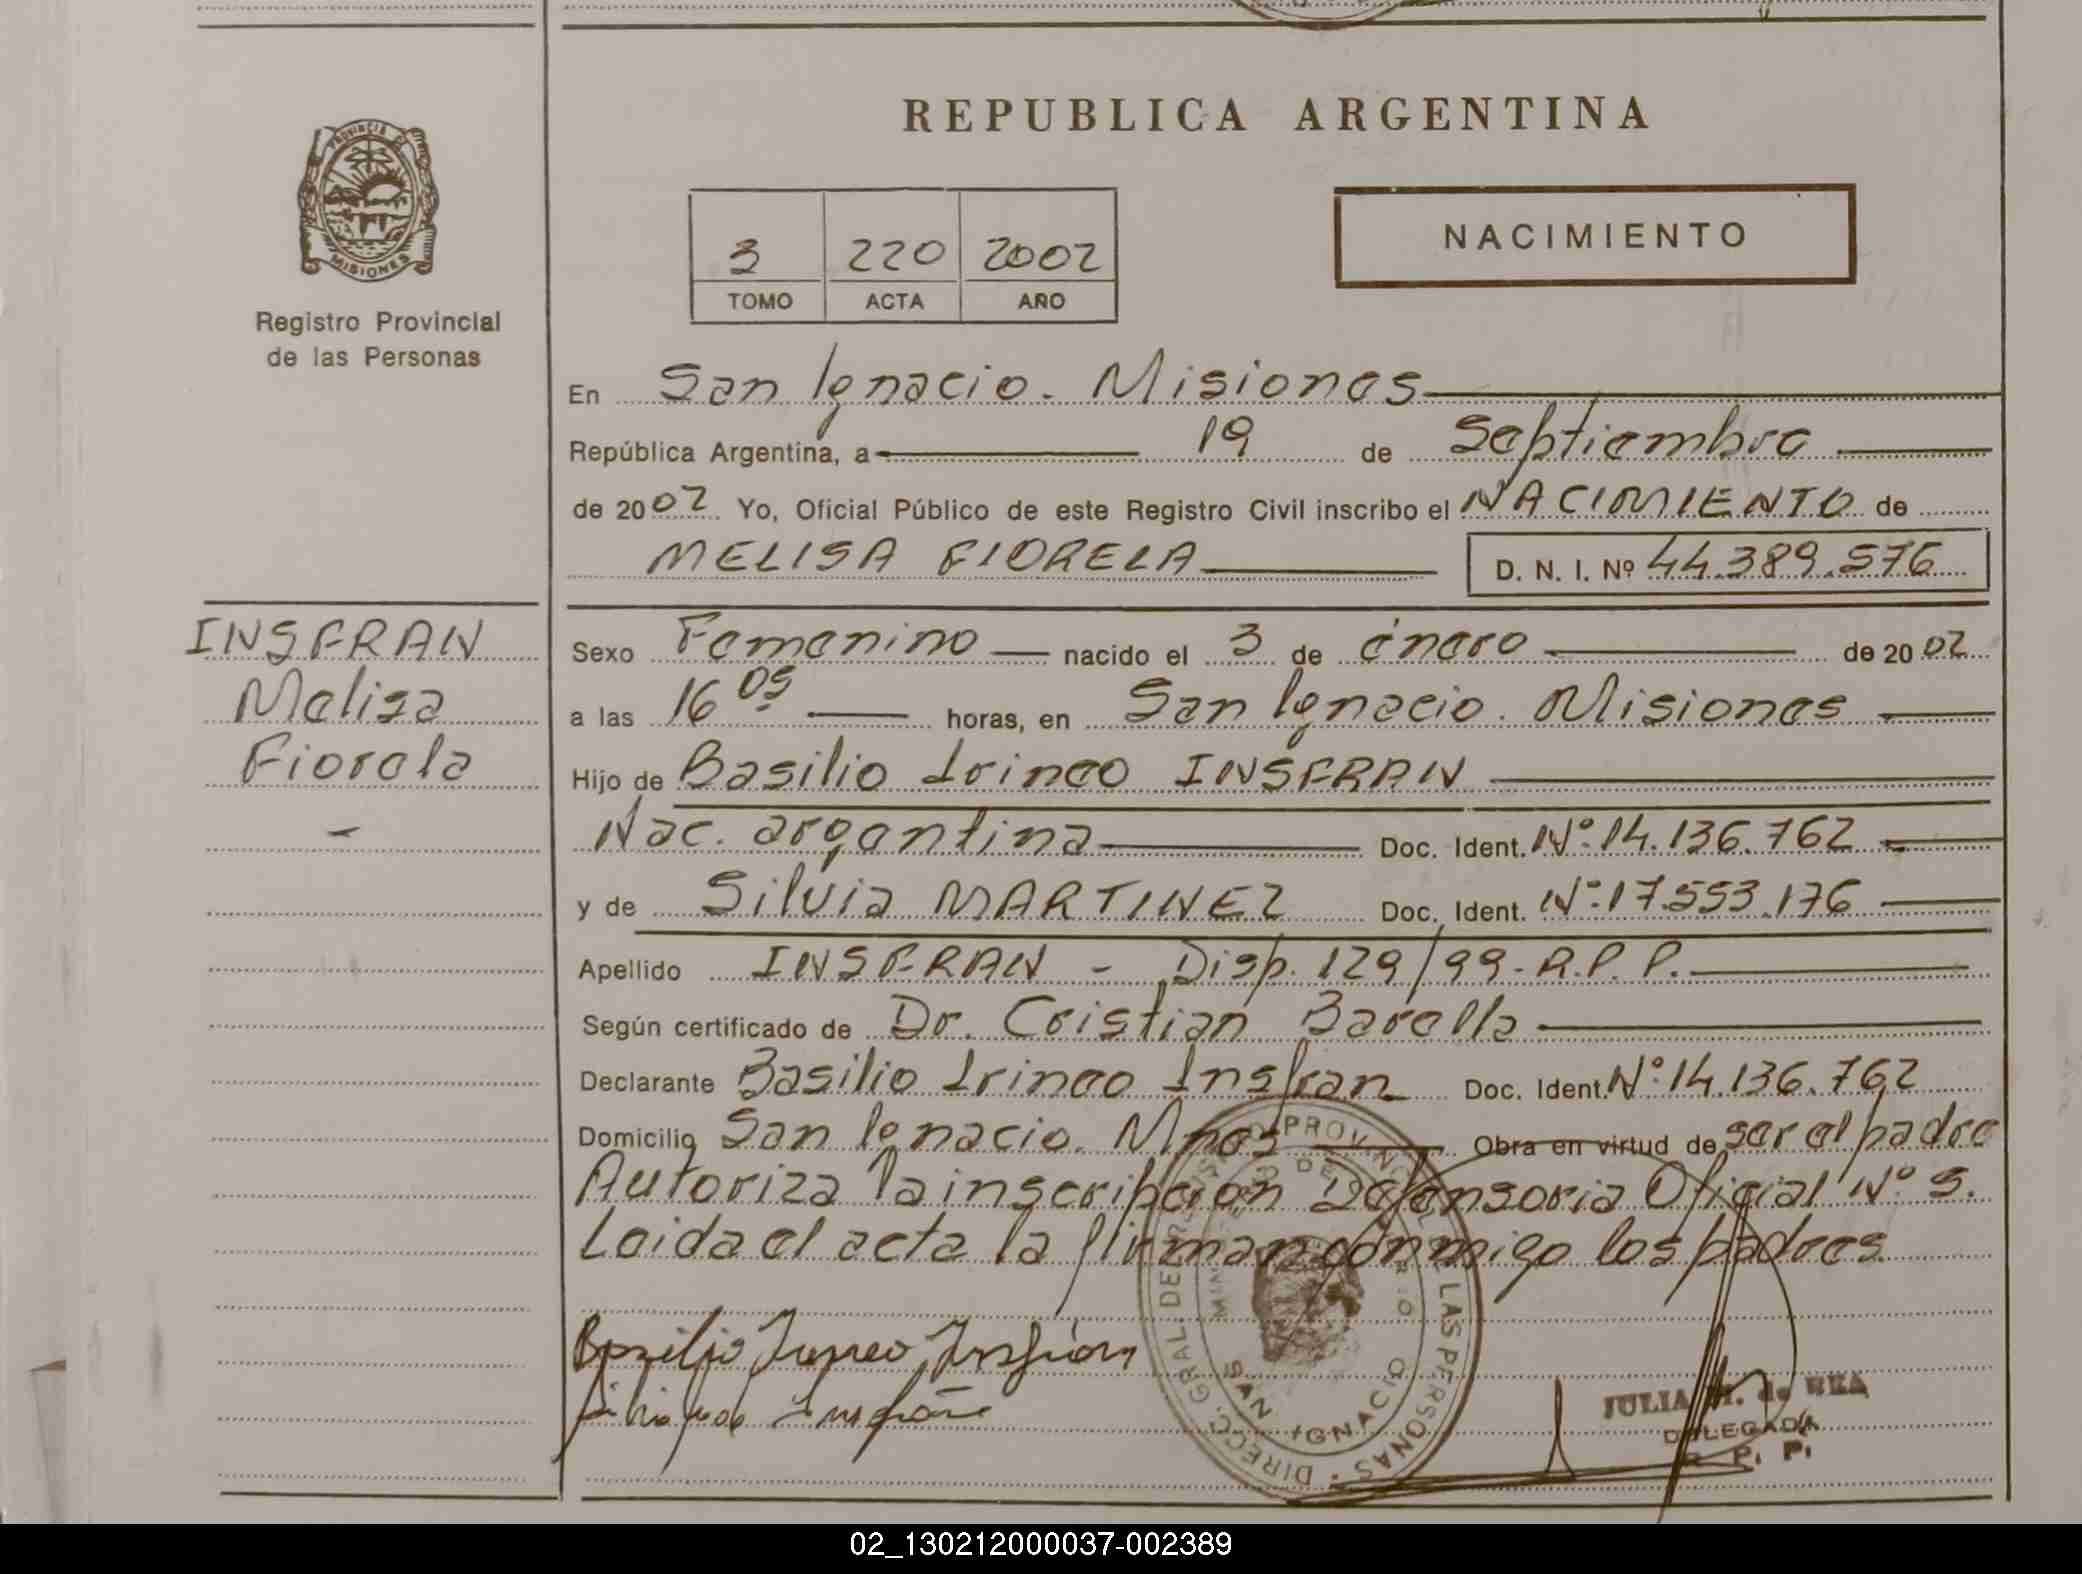 REPUBLICA ARGENTINA
PROVINCIA DE
MISIONES
Registro Provincial
de las Personas
3 220 2002
TOMO ACTA AÑO
NACIMIENTO
En San Ignacio. Misiones
República Argentina, a 19 de Septiembre
de 2002 Yo, Oficial Público de este Registro Civil inscribo el NACIMIENTO de
MELISA FIORELA D. N. I. Nº 44.389.576
INSFRAN
Melisa
Fiorela
Sexo Femenino nacido el 3 de énero de 2002
a las 16 05 horas, en San Ignacio. Misiones
Hijo de Basilio Irineo INSFRAN
Nac. argentina Doc. Ident. Nº 14.136.762
y de Silvia MARTINEZ Doc. Ident. Nº 17.553.176
Apellido INSFRAN - Disp. 129/99- R.P.P.
Según certificado de Dr. Cristian Barella
Declarante Basilio Irineo Insfran Doc. Ident. Nº 14.136.762
Domicilio San Ignacio. Mnes Obra en virtud de ser el padre
Autoriza la inscripcion Defensoria Oficial Nº 5.
Leida el acta la firman conmigo los padres.
Basilio Irineo Insfran
DIRECC. GRAL. DEL REGISTRO PROVINCIAL DE LAS PERSONAS
SAN IGNACIO
JULIA de REA
DELEGADA
R. P. P.
02_130212000037-002389